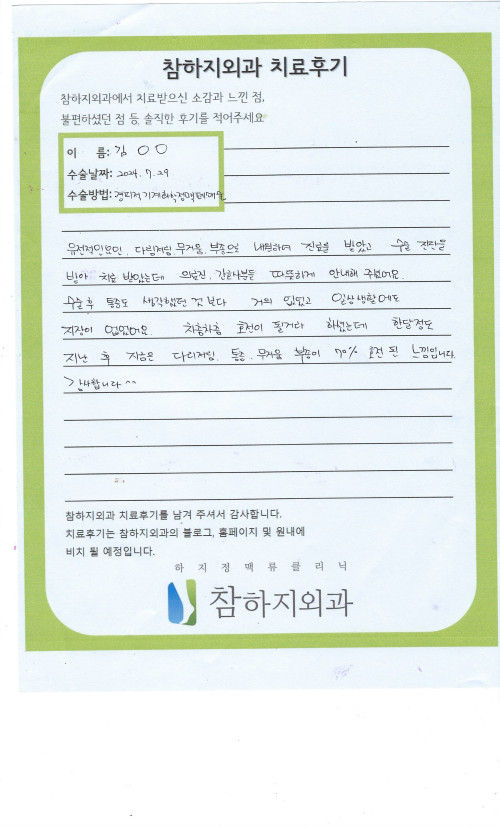 참하지외과 치료후기
참하지외과에서 치료받으신 소감과 느낀 점,
불편하셨던 점 등 솔직한 후기를 적어주세요
이 름: 김 ○○
수술날짜: 2024. 7. 29
수술방법: 경피적기계화학정맥폐쇄술
유전적인요인, 다리저림, 무거움, 부종으로 내원하여 진료를 받았고 수술 진단을
받아 치료 받았는데 의료진, 간호사분들 따뜻하게 안내해 주셨어요.
수술 후 통증도 생각했던 것 보다 거의 없었고 일상생활에도
지장이 없었어요. 차츰차츰 호전이 될거라 하셨는데 한달정도
지난 후 지금은 다리저림, 통증, 무거움 부종이 70% 호전 된 느낌입니다.
감사합니다 ^^
참하지외과 치료후기를 남겨 주셔서 감사합니다.
치료후기는 참하지외과의 블로그, 홈페이지 및 원내에
비치 될 예정입니다.
하지정맥류클리닉
참하지외과